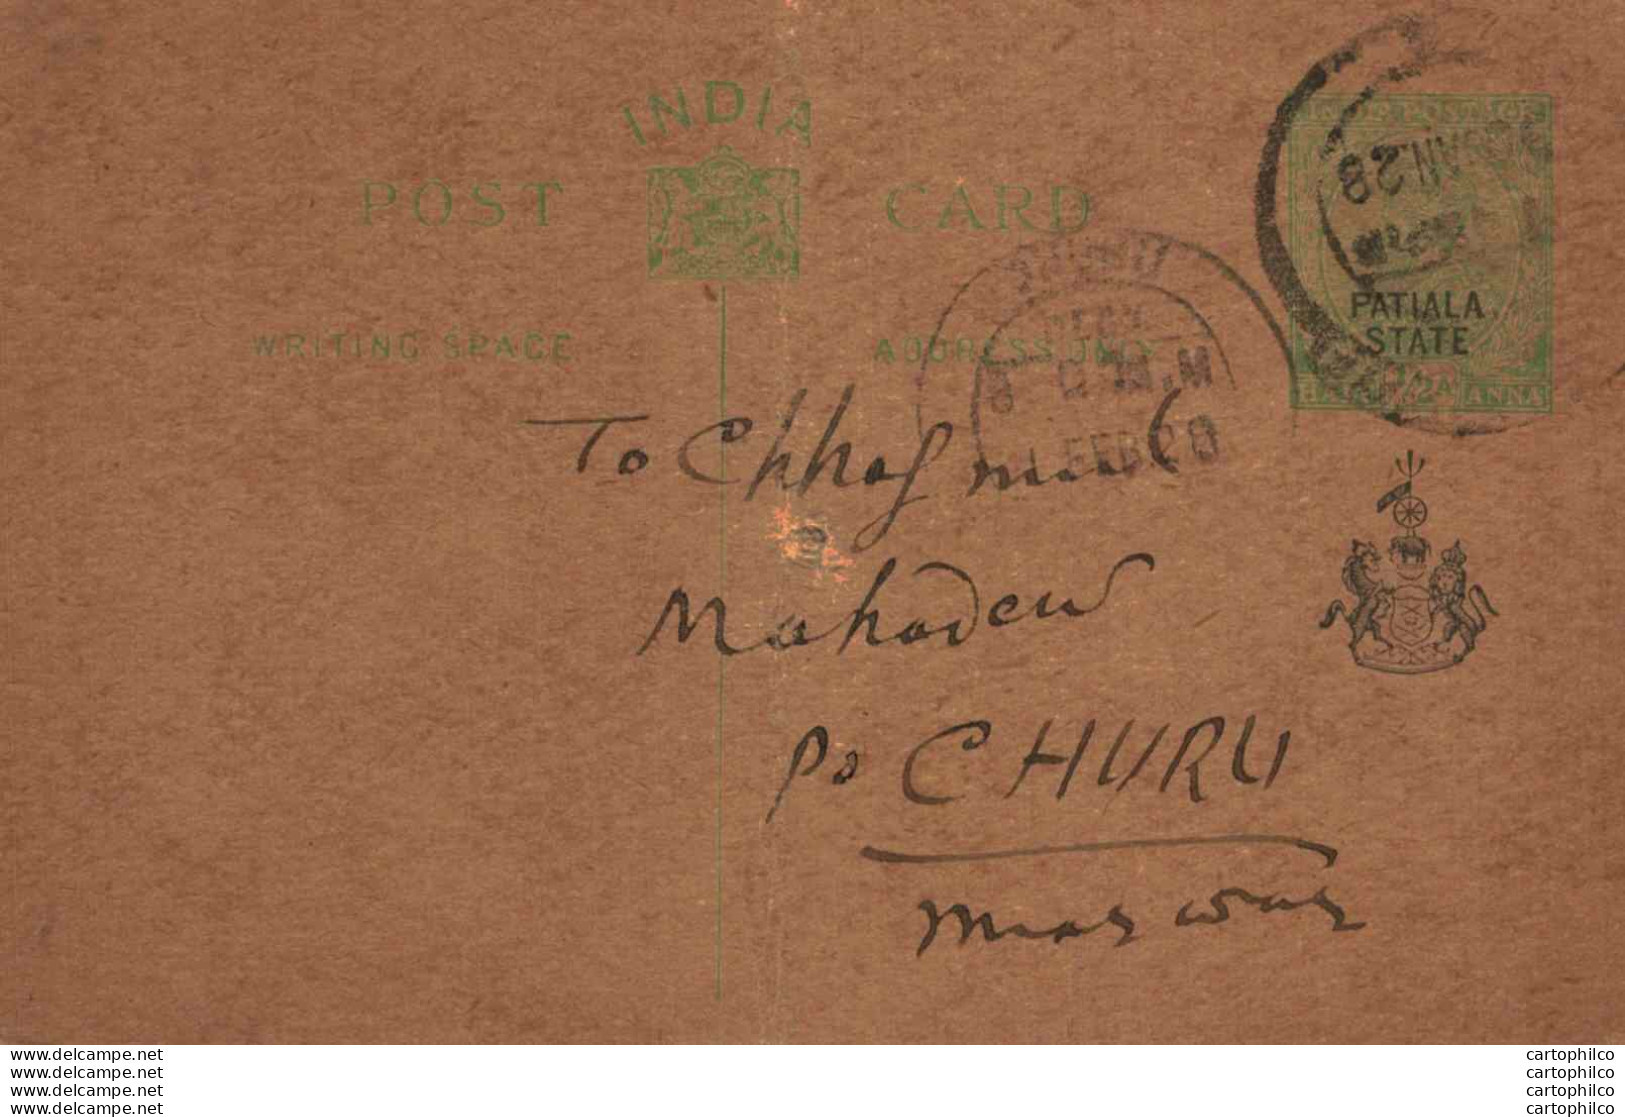 INDIA
POST CARD
WRITING SPACE
ADDRESS ONLY
PATIALA
STATE
ANNA
JAN. 28
FEB 28
To Chhagmal
Mahadew
Po CHURU
Marwar
www.delcampe.net
www.delcampe.net
www.delcampe.net
www.delcampe.net
cartophilco
cartophilco
cartophilco
cartophilco